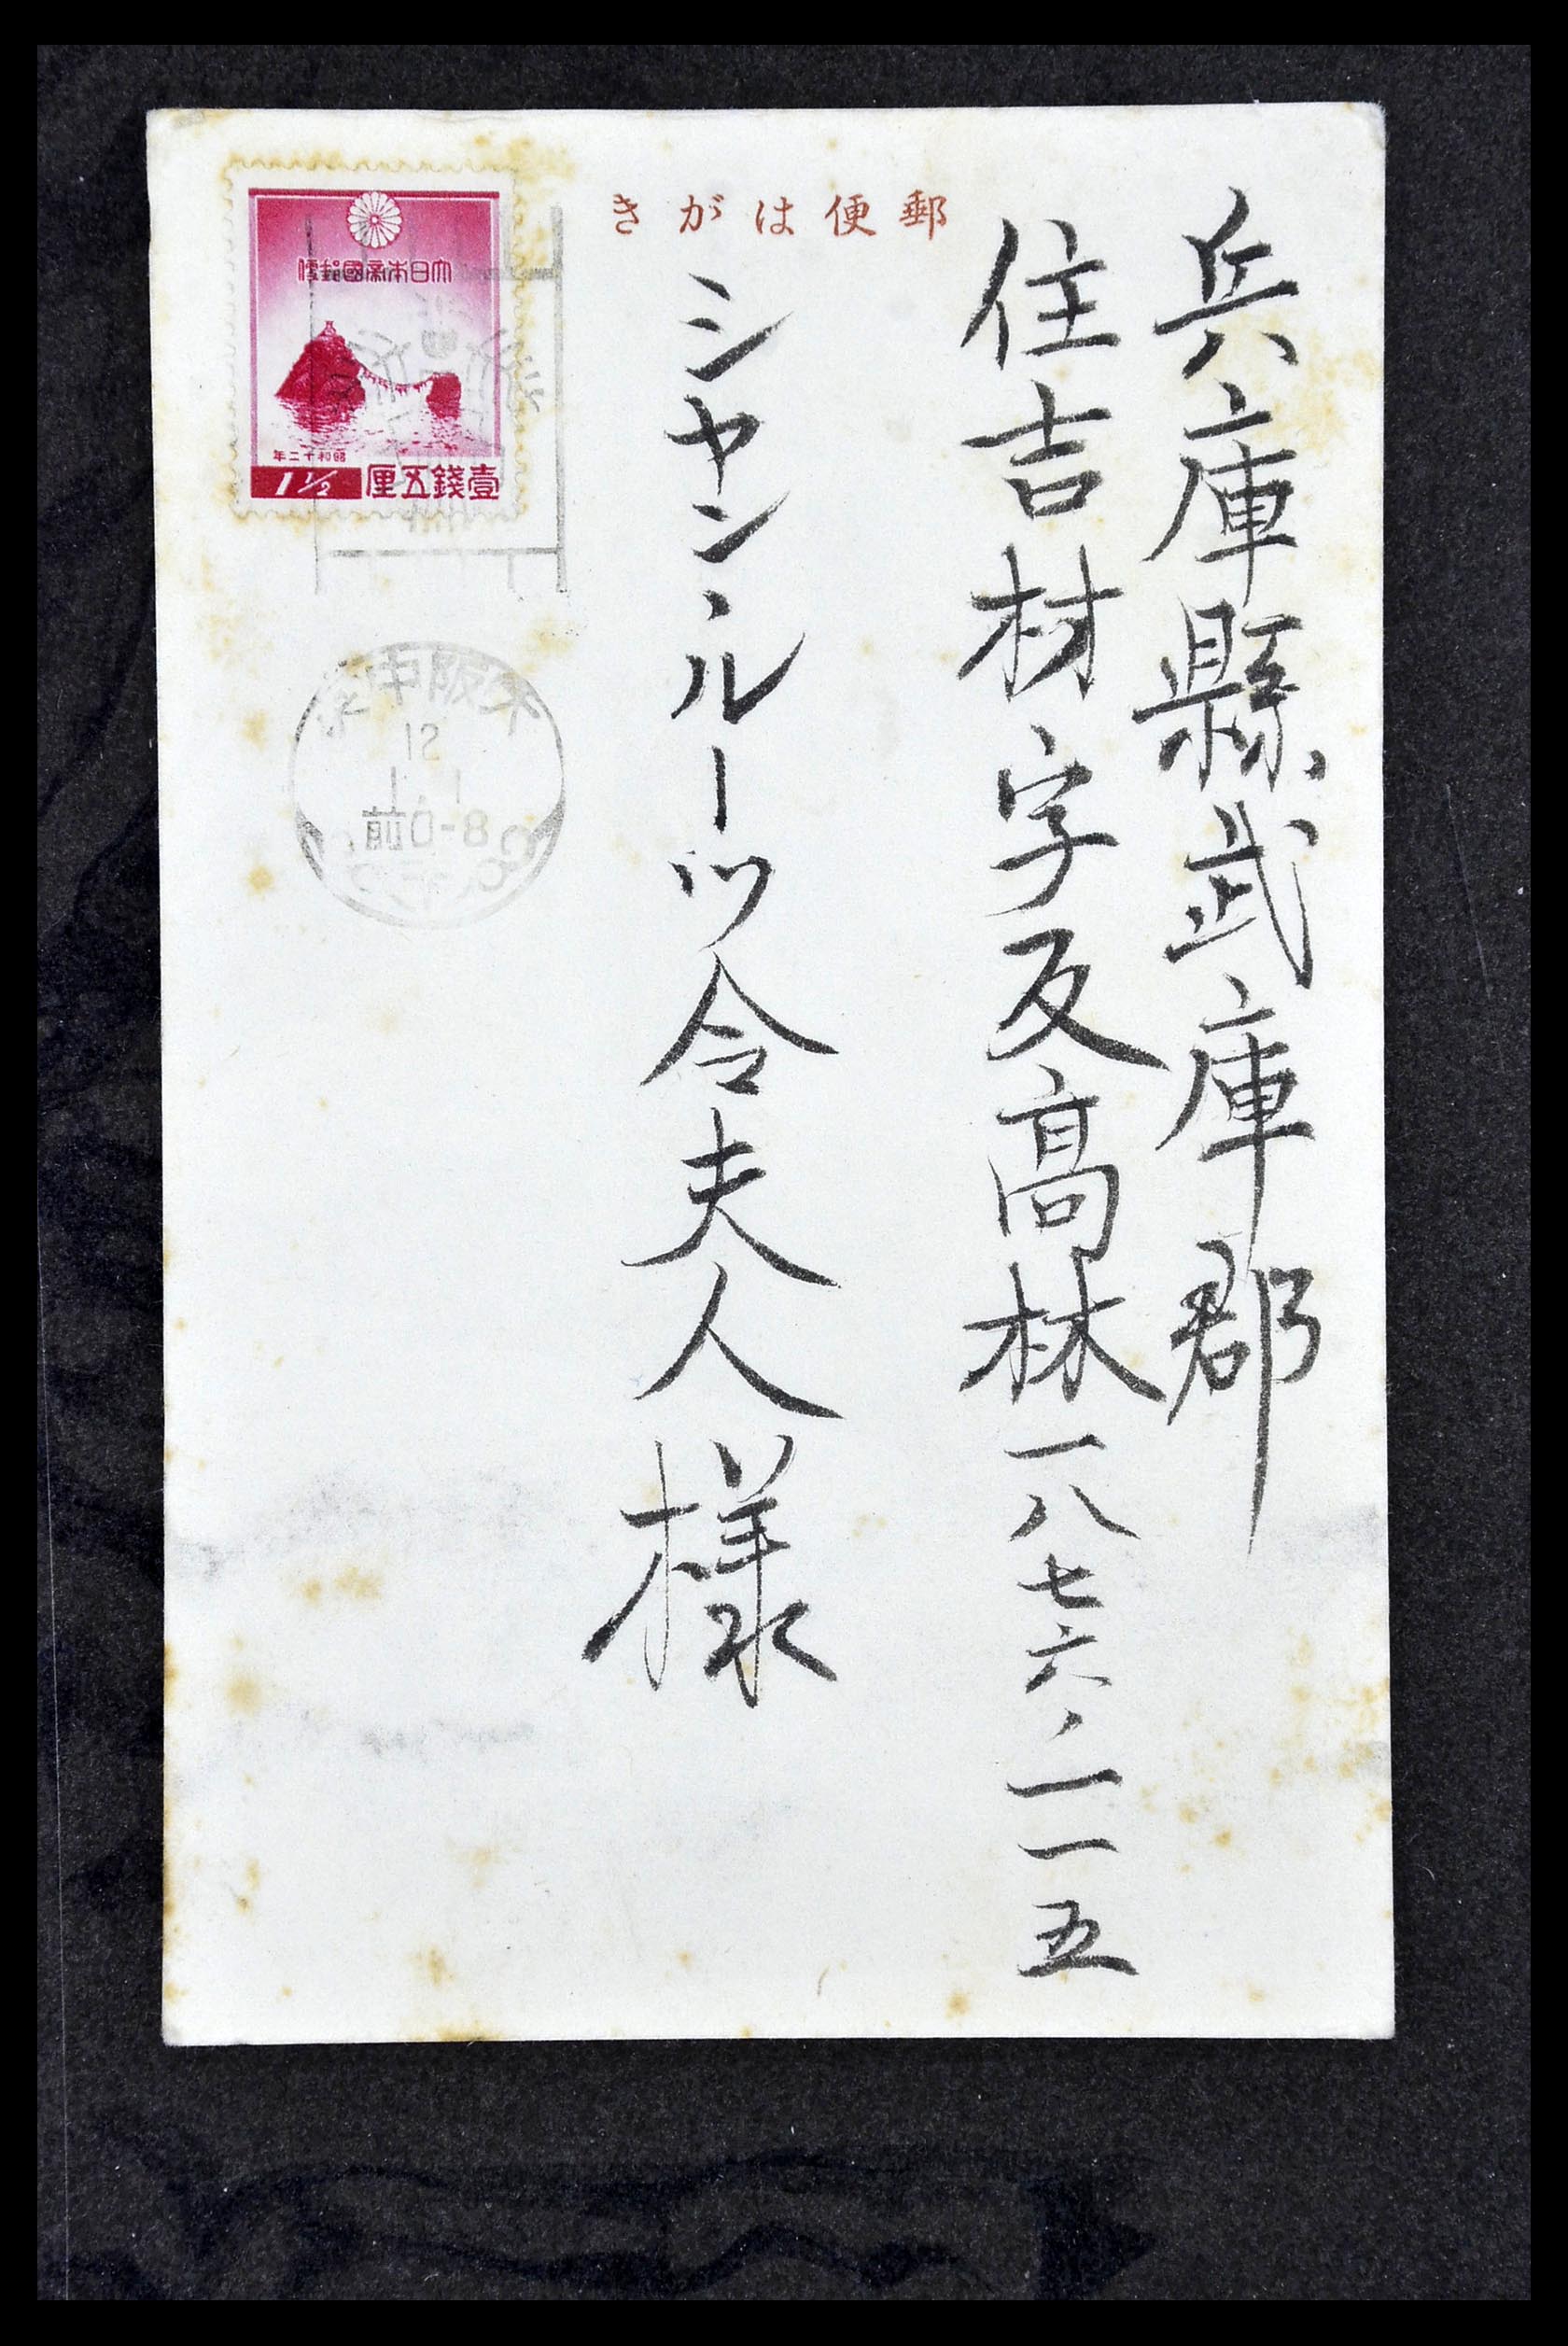 郵便はがき
兵庫縣武庫郡
住吉村字反高林一八七六ノ一一五
シャン、ルーツ令夫人様
大日本帝國郵便
昭和十二年
1 1/2 壹錢五厘
大阪中央
12
1.1
前0-8